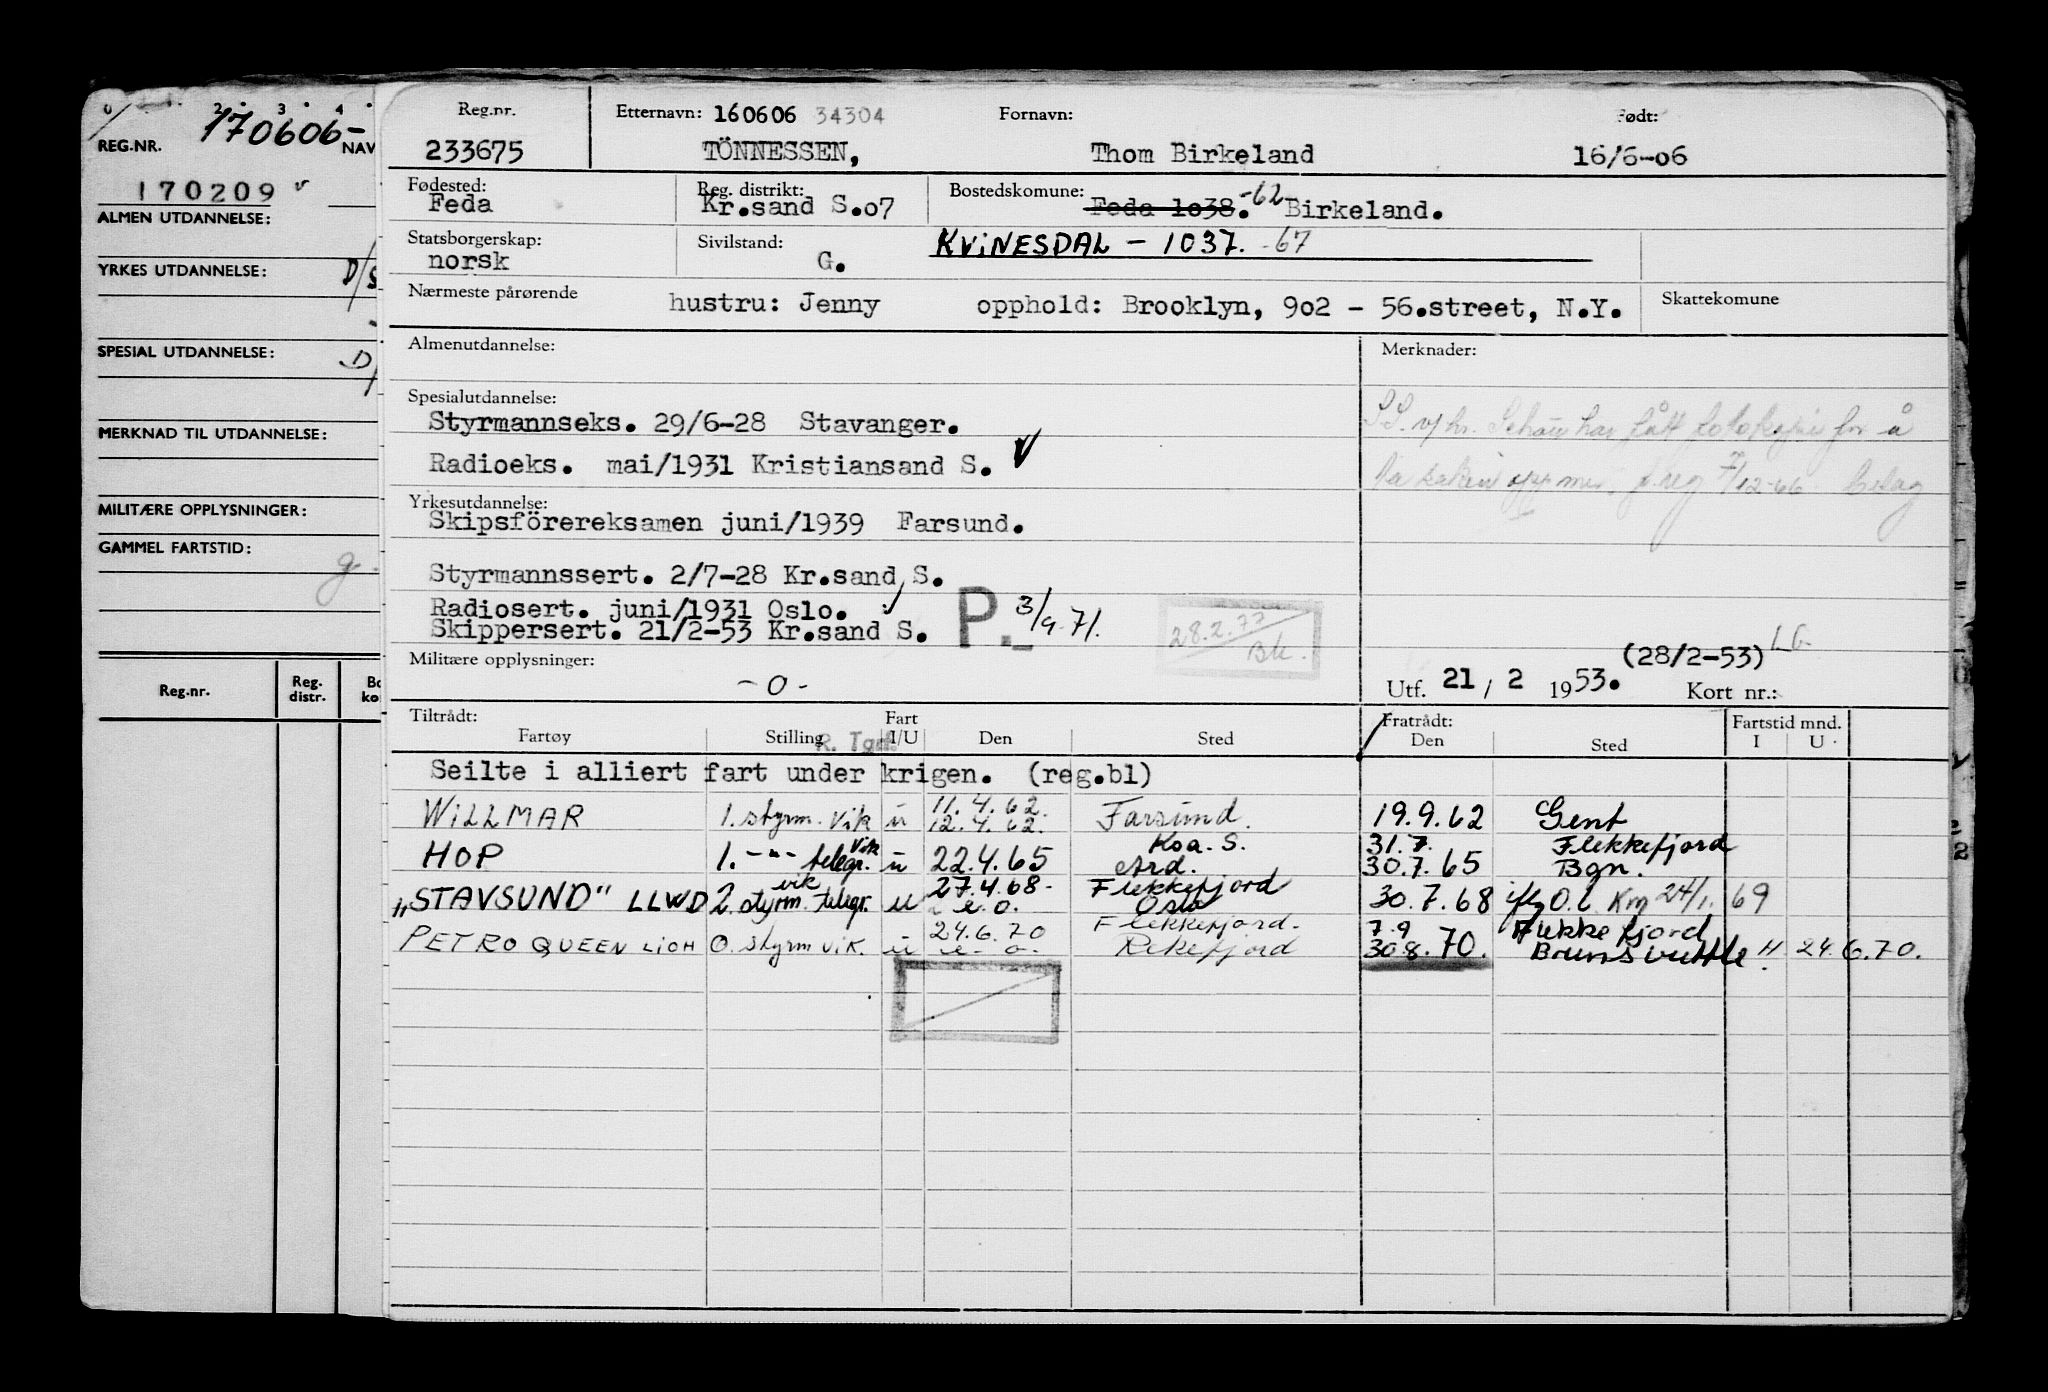 2 · 3 · 4 ·
170606-
REG.NR.
NAV
170209 v
ALMEN UTDANNELSE:
YRKES UTDANNELSE:
D/S
SPESIAL UTDANNELSE:
D/
MERKNAD TIL UTDANNELSE:
MILITÆRE OPPLYSNINGER:
GAMMEL FARTSTID:
g.
Reg.nr.
Reg. distr.
Reg.nr.
233675
Etternavn: 160606 34304
TÖNNESSEN,
Fornavn:
Thom Birkeland
Født:
16/6-06
Fødested:
Feda
Reg. distrikt:
Kr.sand S.o7
Bostedskomune:
Feda 1o38.-62 Birkeland.
KVINESDAL - 1037. -67
Statsborgerskap:
norsk
Sivilstand:
G.
Nærmeste pårørende
hustru: Jenny opphold: Brooklyn, 9o2 - 56.street, N.Y.
Skattekomune
Almenutdannelse:
Merknader:
S.S. v/hr. Schau har fått fotokopi for å
ta saken opp
7/12-66
Spesialutdannelse:
Styrmannseks. 29/6-28 Stavanger.
Radioeks. mai/1931 Kristiansand S. V
Yrkesutdannelse:
Skipsförereksamen juni/1939 Farsund.
Styrmannssert. 2/7-28 Kr.sand S.
Radiosert. juni/1931 Oslo.
Skippersert. 21/2-53 Kr.sand S.
P. 3/9-71.
28.2.77
Bk.
Militære opplysninger:
- 0 -
(28/2-53) LG
Utf. 21 / 2 1953. Kort nr.:
Tiltrådt:
Fartøy Stilling Fart I/U Den Sted
R. Tgm.
Fratrådt:
Den Sted
Fartstid mnd.
I U
Seilte i alliert fart under krigen. (reg.bl)
11.4.62
WILLMAR 1. styrm. vik u 12.4.62. Farsund. 19.9.62 Gent
Vik Koa. S. 31.7. Flekkefjord
HOP 1. -"- telegr. u 22.4.65 Ard. 30.7.65 Bgn.
vik 27.4.68- Flekkefjord
„STAVSUND" LLWD 2. styrm. telegr. u e.o. Oslo 30.7.68 iflg O.l. Km 24/1. 69
24.6.70 Flekkefjord. 7.9 Flekkefjord
PETRO QUEEN LIOH O. styrm vik. u e-o- Rekefjord 30.8.70. Brunsbuttle H. 24.6.70.